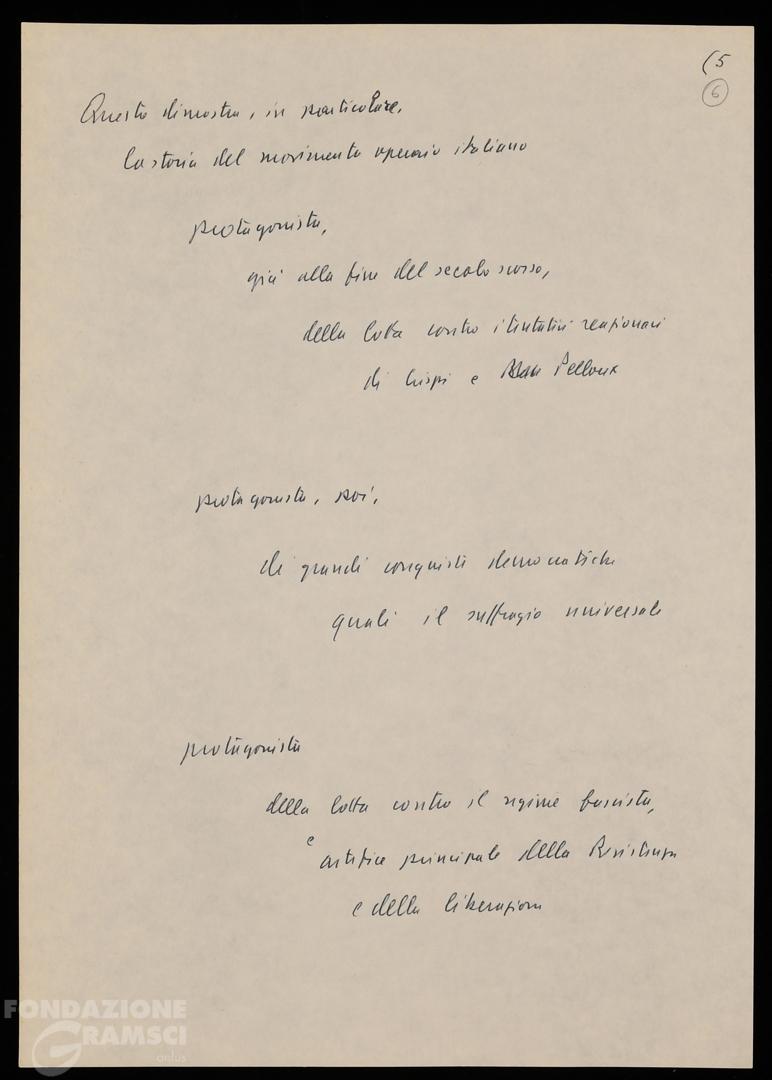 (5
6
Questo dimostra, in particolare,
la storia del movimento operaio italiano
protagonista,
già alla fine del secolo scorso,
della lotta contro i tentativi reazionari
di Crispi e Pelloux
protagonista, poi,
di grandi conquiste democratiche
quali il suffragio universale
protagonista
della lotta contro il regime fascista,
e artefice principale della Resistenza
e della liberazione
FONDAZIONE
GRAMSCI
onlus